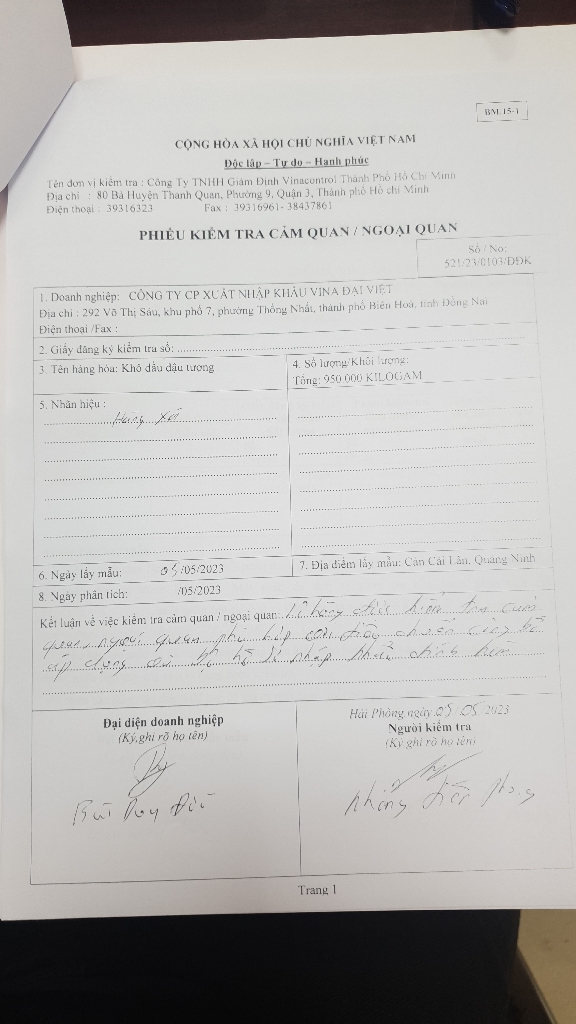 BM.15-1
CỘNG HÒA XÃ HỘI CHỦ NGHĨA VIỆT NAM
Độc lập – Tự do – Hạnh phúc
Tên đơn vị kiểm tra : Công Ty TNHH Giám Định Vinacontrol Thành Phố Hồ Chí Minh
Địa chỉ : 80 Bà Huyện Thanh Quan, Phường 9, Quận 3, Thành phố Hồ chí Minh
Điện thoại : 39316323 Fax : 39316961- 38437861
PHIẾU KIỂM TRA CẢM QUAN / NGOẠI QUAN
Số / No:
521/23/0103/ĐĐK
1. Doanh nghiệp: CÔNG TY CP XUẤT NHẬP KHẨU VINA ĐẠI VIỆT
Địa chỉ : 292 Võ Thị Sáu, khu phố 7, phường Thống Nhất, thành phố Biên Hoà, tỉnh Đồng Nai
Điện thoại /Fax :
2. Giấy đăng ký kiểm tra số:
3. Tên hàng hóa: Khô dầu đậu tương
4. Số lượng/Khối lượng:
Tổng: 950.000 KILOGAM
5. Nhãn hiệu :
Hàng xá
6. Ngày lấy mẫu: 05/05/2023
7. Địa điểm lấy mẫu: Cản Cái Lân, Quảng Ninh
8. Ngày phân tích: /05/2023
Kết luận về việc kiểm tra cảm quan / ngoại quan: Lô hàng được kiểm tra cảm
quan, ngoại quan phù hợp với tiêu chuẩn công bố
áp dụng và hồ sơ nhập khẩu đính kèm
Hải Phòng ngày 05/05/2023
Đại diện doanh nghiệp
Người kiểm tra
(Ký,ghi rõ họ tên)
(Ký ghi rõ họ tên)
Bùi Duy
Phong
Trang 1